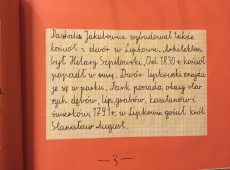 Paschalis Jakubowicz wybudował także
kościół i dwór w Lipkowie. Architektem
był Hilary Szpilowski. Od 1830 r. kościół
popadał w ruinę. Dwór lipkowski znajdu-
je się w parku. Park posiada okazy sta-
rych dębów, lip, grabów, kasztanów i
świerków. 1791 r. w Lipkowie gościł król
Stanisław August.
- 3 -